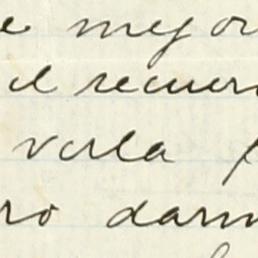 e mejor
el recuer
verla
ro darm